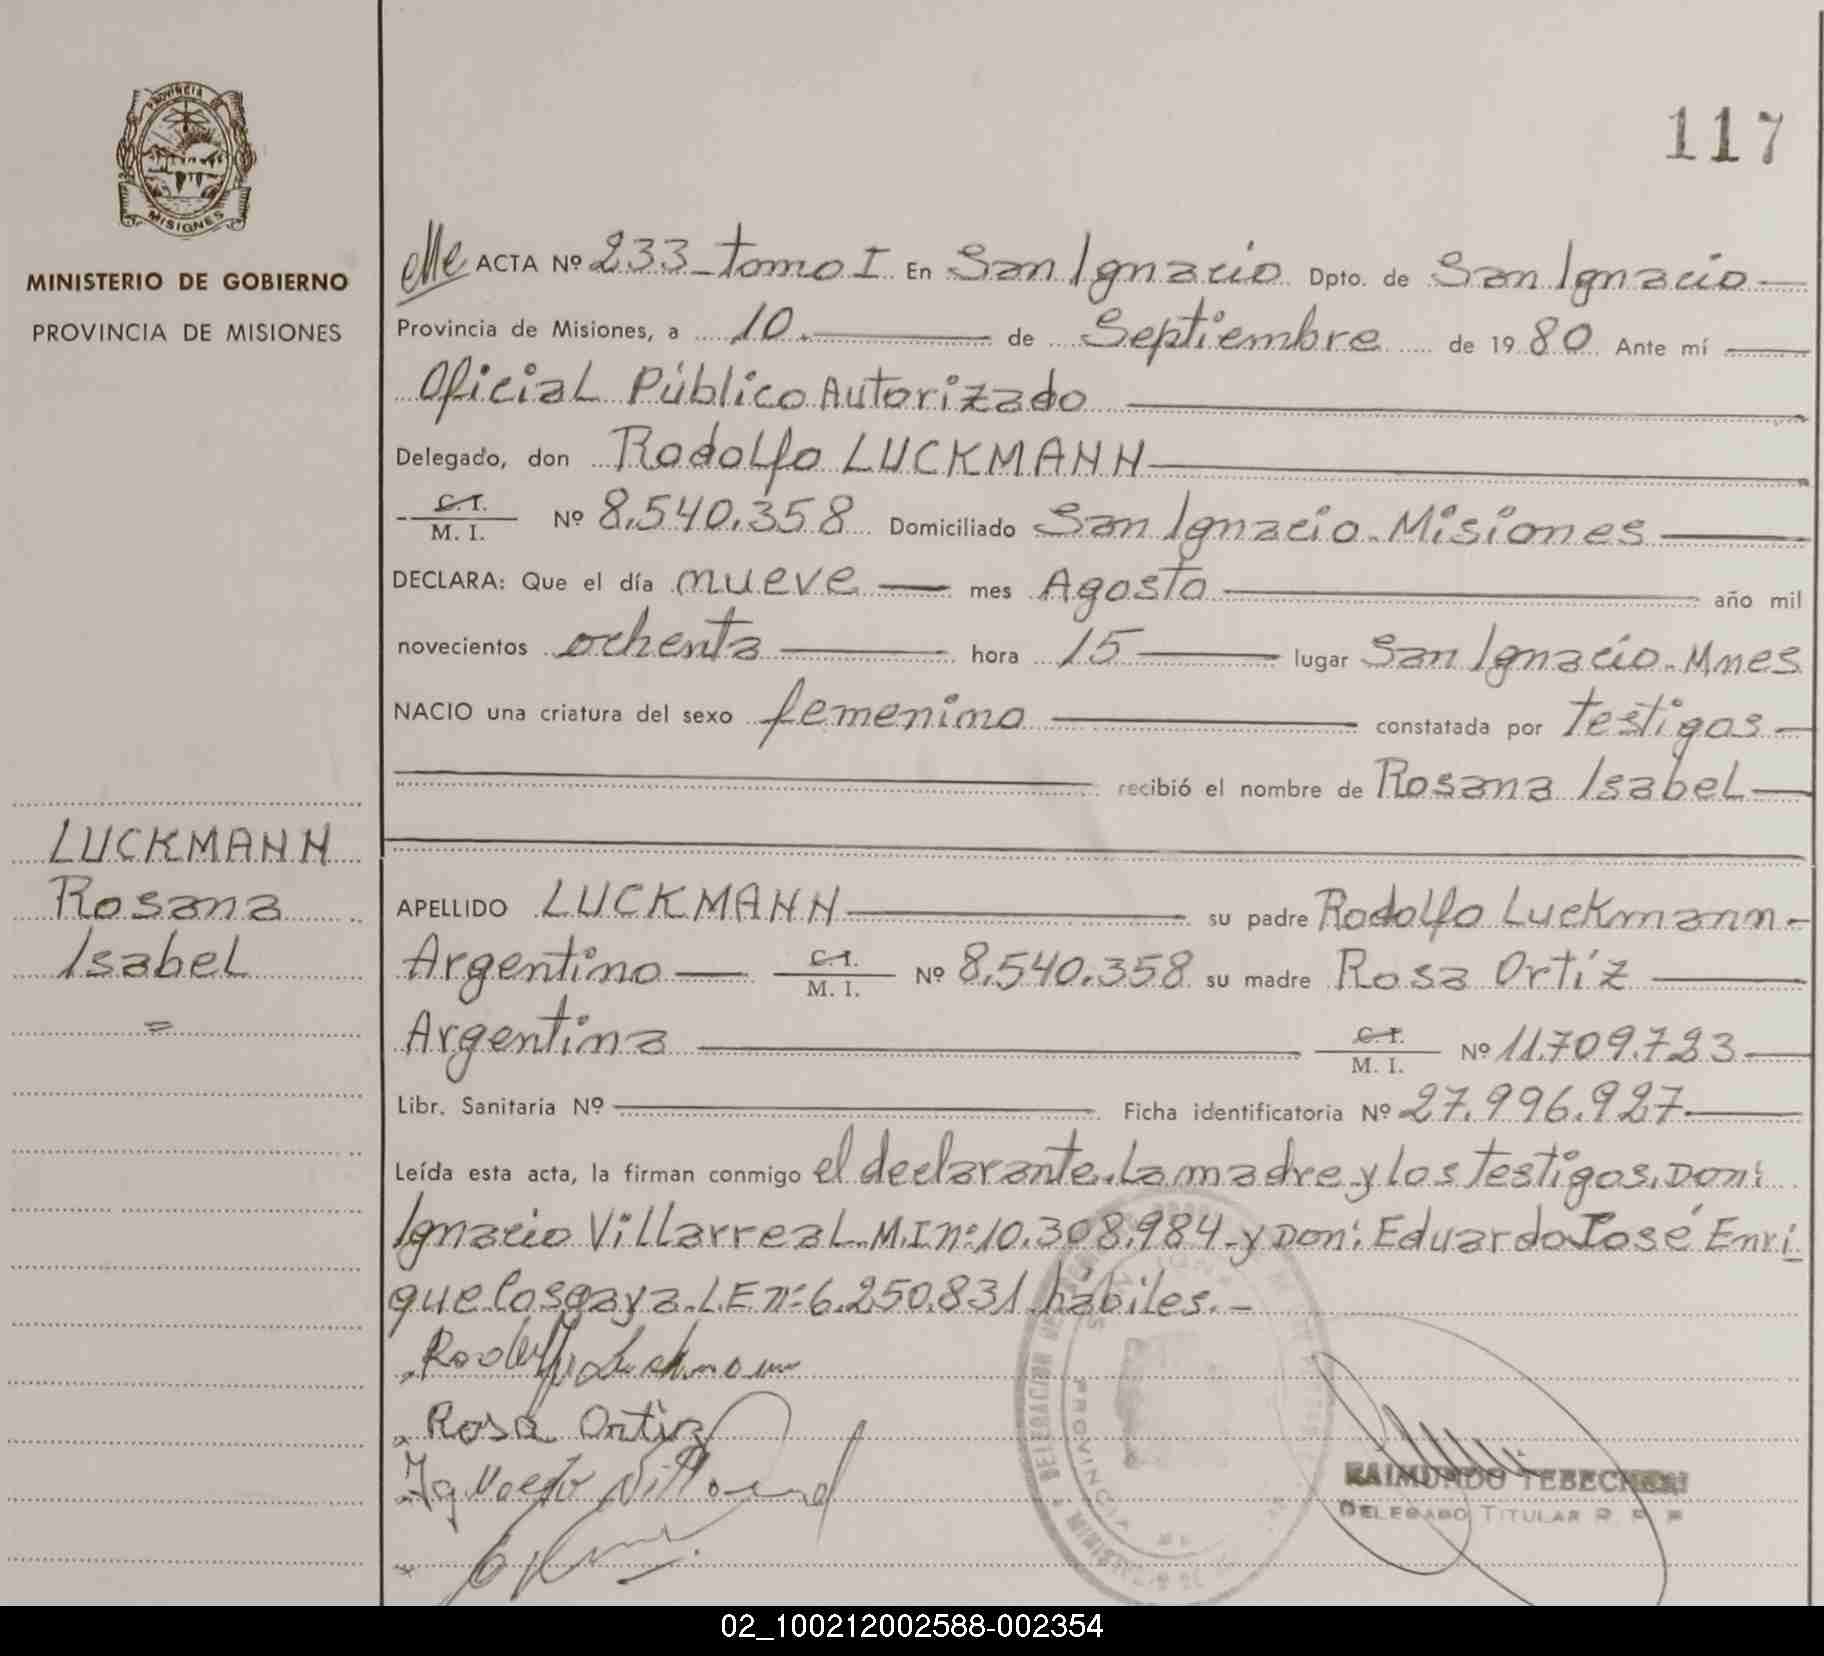 PROVINCIA DE
MISIONES
MINISTERIO DE GOBIERNO
PROVINCIA DE MISIONES
LUCKMANN
Rosana
Isabel
=
117
ACTA Nº 233 - tomo I En San Ignacio Dpto. de San Ignacio
Provincia de Misiones, a 10. de Septiembre de 1980 Ante mí
Oficial Público Autorizado
Delegado, don Rodolfo LUCKMANN
C.I.
M. I. Nº 8.540.358 Domiciliado San Ignacio. Misiones
DECLARA: Que el día nueve mes Agosto año mil
novecientos ochenta hora 15 lugar San Ignacio. Mnes
NACIO una criatura del sexo femenino constatada por testigos
recibió el nombre de Rosana Isabel
APELLIDO LUCKMANN su padre Rodolfo Luckmann
Argentino C.I. M. I. Nº 8.540.358 su madre Rosa Ortíz
Argentina C.I. M. I. Nº 11.709.723
Libr. Sanitaria Nº Ficha identificatoria Nº 27.996.927
Leída esta acta, la firman conmigo el declarante. La madre y los testigos. Don:
Ignacio Villarreal. M.I nº: 10.308.984 - y Don: Eduardo José Enri
que Losgaya. L.E nº: 6.250.831 hábiles. -
Rodolfo Luckmann
Rosa Ortiz
DELEGACION
PROVINCIA
RAIMUNDO TEBECHERI
DELEGADO TITULAR R. P. P.
02_100212002588-002354